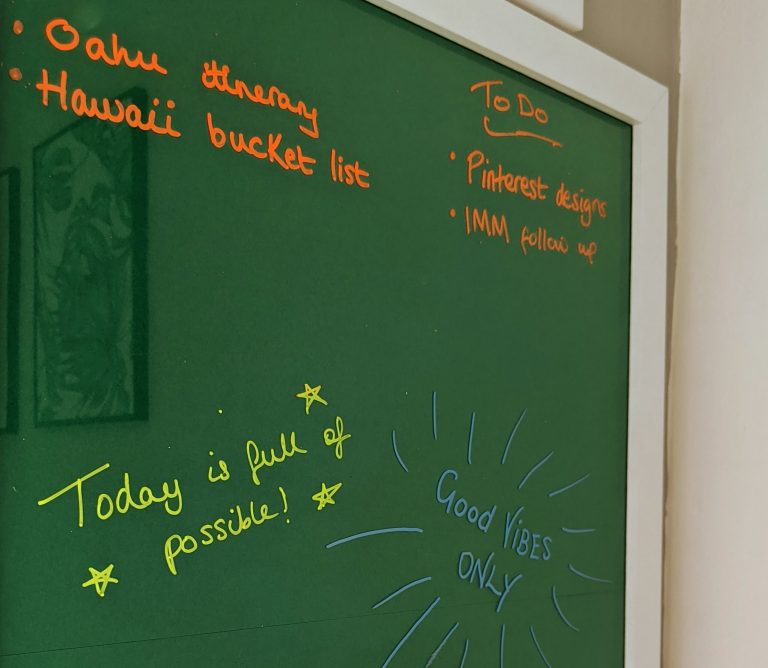 • Oahu itinerary
• Hawaii bucket list
To Do
• Pinterest designs
• IMM follow up
Today is full of
possible!
Good ViBES
ONLY